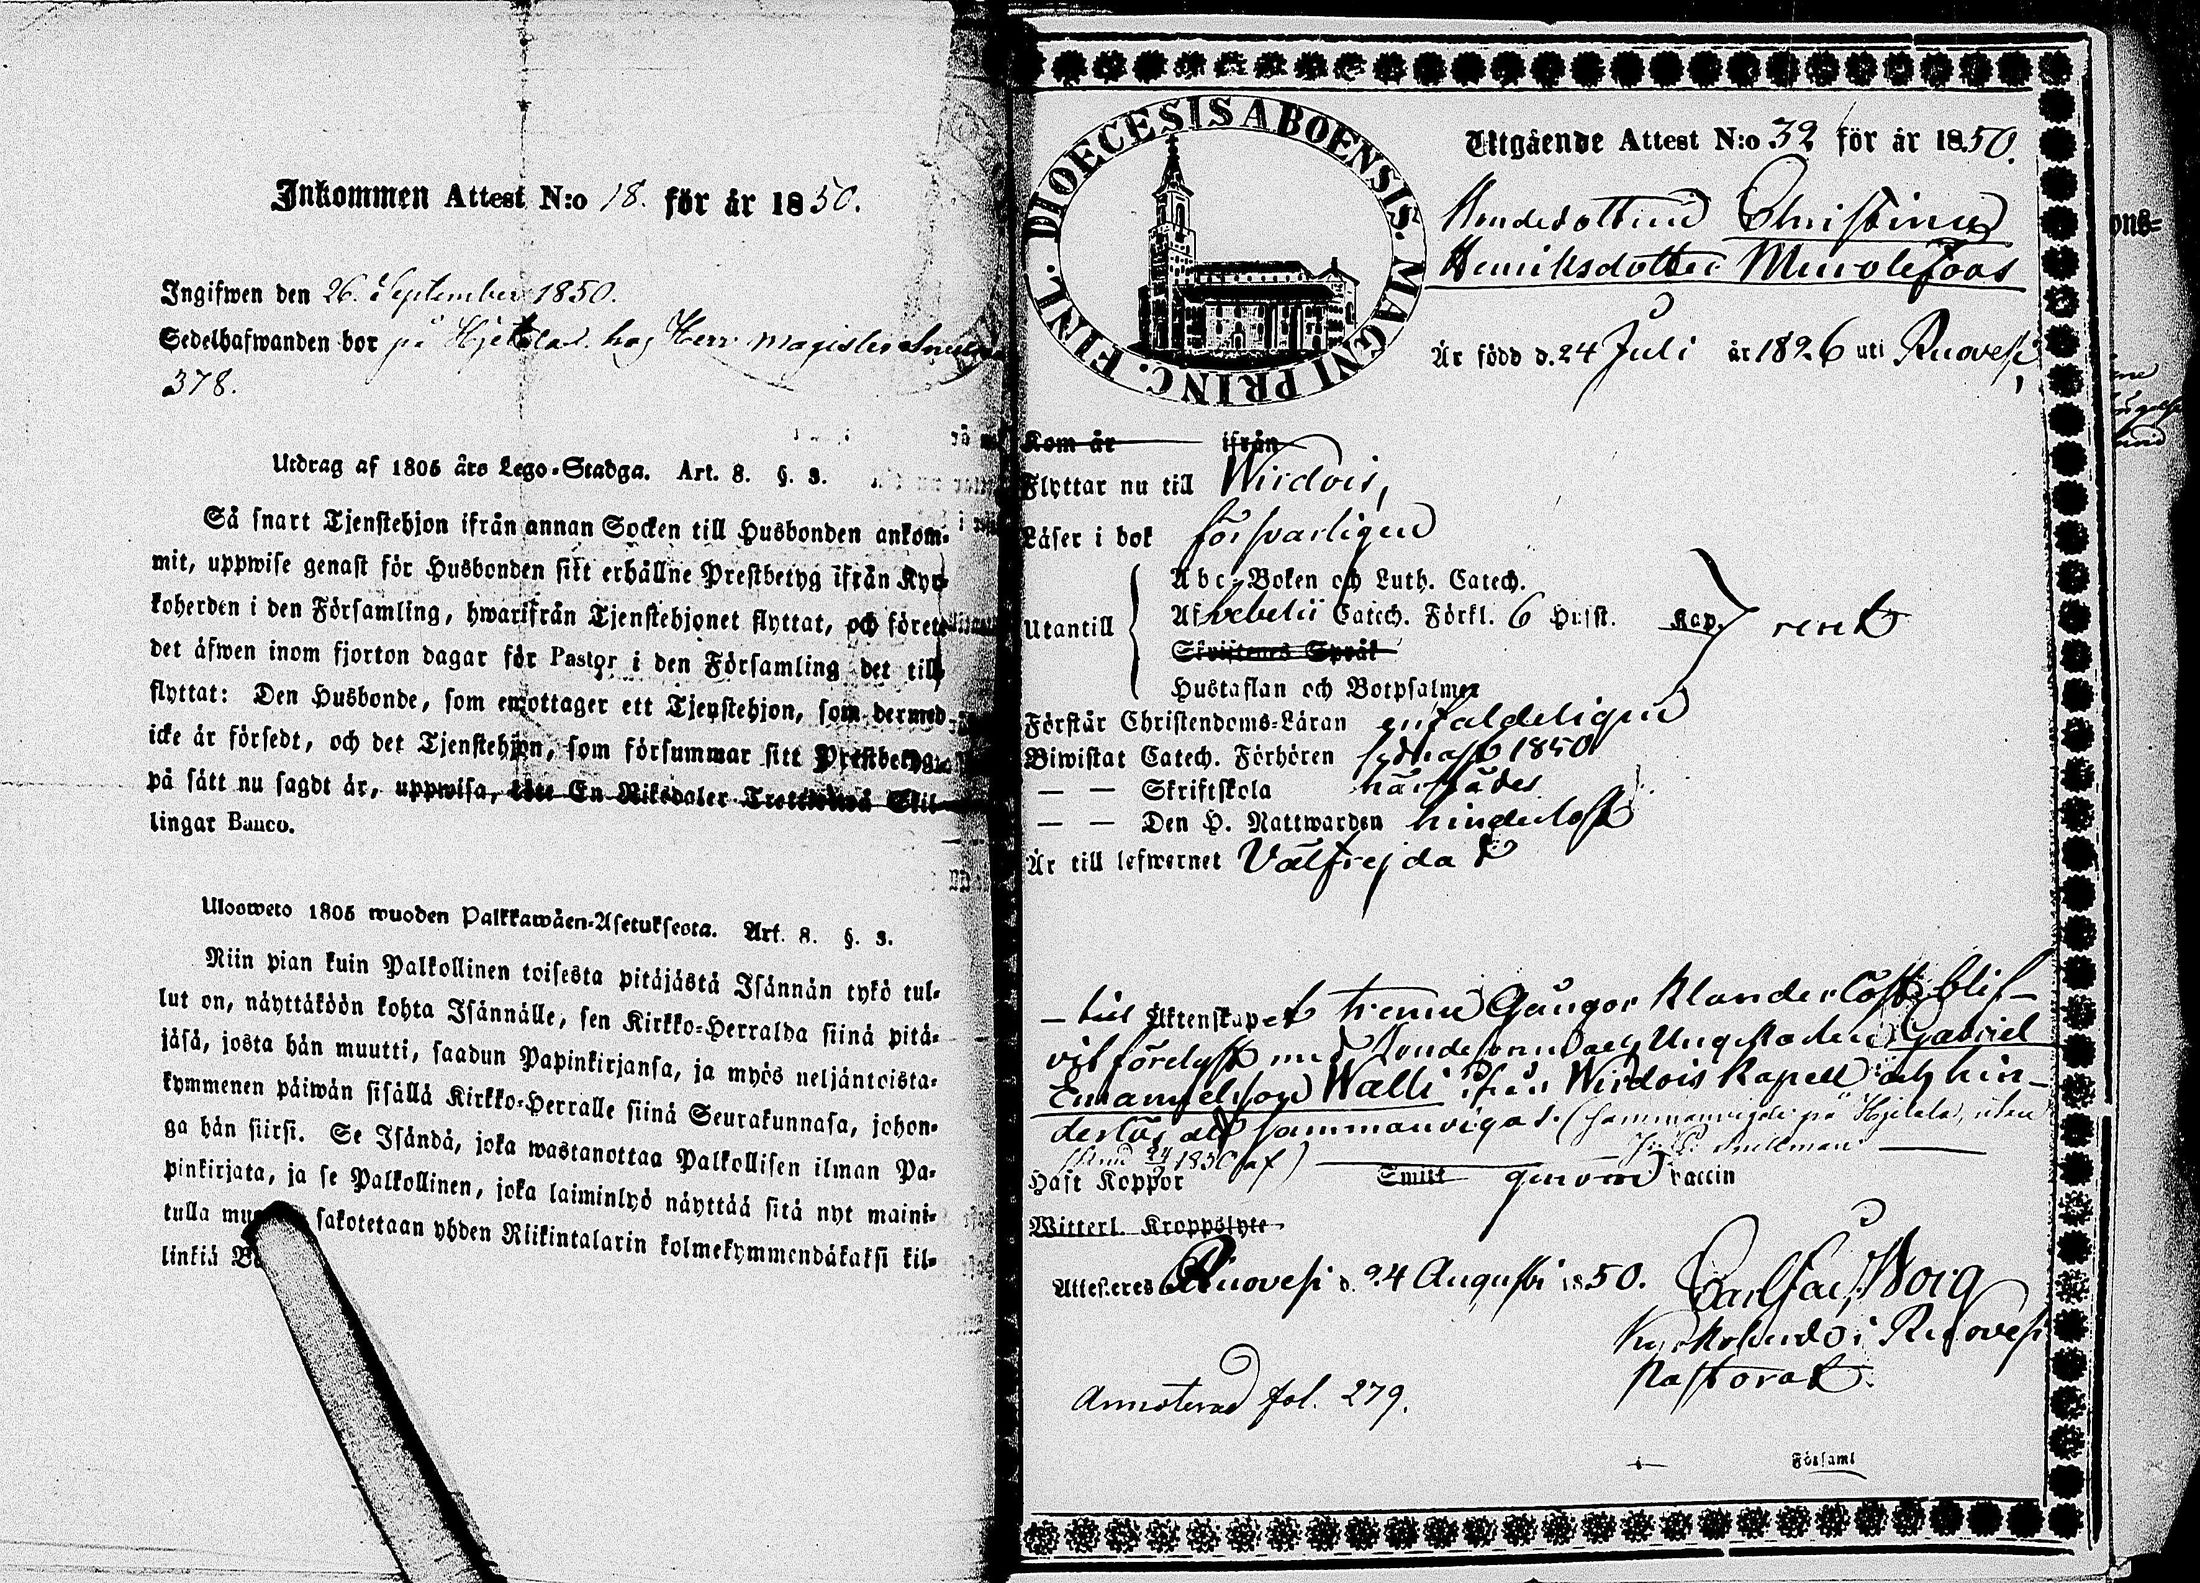 Inkommen Attest N:o 18. för år 1850.
Ingifwen den 26. September 1850.
Sedelhafwanden bor på Hjekala hos Herr Magister
378.
Utdrag af 1805 års Lego-Stadga. Art. 8. §. 3.
Så snart Tjenstehjon ifrån annan Socken till Husbonden ankom-
mit, uppwise genast för Husbonden sitt erhållne Prestbetyg ifrån Kyr-
koherden i den Församling, hwarifrån Tjenstehjonet flyttat, och förete
det äfwen inom fjorton dagar för Pastor i den Församling det till-
flyttat: Den Husbonde, som emottager ett Tjenstehjon, som dermed
icke är försedt, och det Tjenstehjon, som försummar sitt Prestbetyg
på sätt nu sagdt är, uppwisa, böte En Riksdaler Trettiotvå Skil-
lingar Banco.
Ulosweto 1805 wuoden Palkkawäen-Asetuksesta. Art. 8. §. 3.
Niin pian kuin Palkollinen toisesta pitäjästä Isännän tykö tul-
lut on, näyttäköön kohta Isännälle, sen Kirkko-Herralda siinä pitä-
jäsä, josta hän muutti, saadun Papinkirjansa, ja myös neljäntoista-
kymmenen päiwän sisällä Kirkko-Herralle siinä Seurakunnasa, johon-
ga hän siirsi. Se Isändä, joka wastanottaa Palkollisen ilman Pa-
pinkirjata, ja se Palkollinen, joka laiminlyö näyttää sitä nyt maini-
tulla sakotetaan yhden Riikintalarin kolmekymmendäkaksi kil-
linkiä
DIOECESIS ABOENSIS. MAGNI PRINC. FINL.
Utgående Attest N:o 32 för år 1850.
Bondedottren Christina
Henriksdotter Murolefoas
Är född d. 24 Juli år 1826 uti Ruovesi,
Kom år ifrån
Flyttar nu till Wirdois,
Läser i bok försvarligen
Utantill
Abc-Boken och Luth. Catech.
Af Svebelii Catech. Förkl. 6 Hufst. Kap. rent
Skriftenes Språk
Hustaflan och Botpsalmer
Förstår Christendoms-Läran enfaldeligen
Biwistat Catech. Förhören sednast 1850
— — Skriftskola härstädes
— — Den H. Nattwarden hinderlöst
Är till lefwernet Välfrejdad
— till Äktenskapet trenne Gångor klanderlöst blif-
vit förelyst med Bondesonen och Ungkarlen Gabriel
Emanuelsson Walli ifrån Wirdois Kapell och hin-
derlös att sammanvigas. (Sammanvigde på Hjekala,
1850 af)
Haft Koppor Smitt genom Vaccin
Witterl. Kroppslyte
Attesteres Ruovesi d. 24 Augusti 1850. Borg
Kyrkoherde i Ruovesi
Pastorat.
Annoterad fol. 279.
Församl